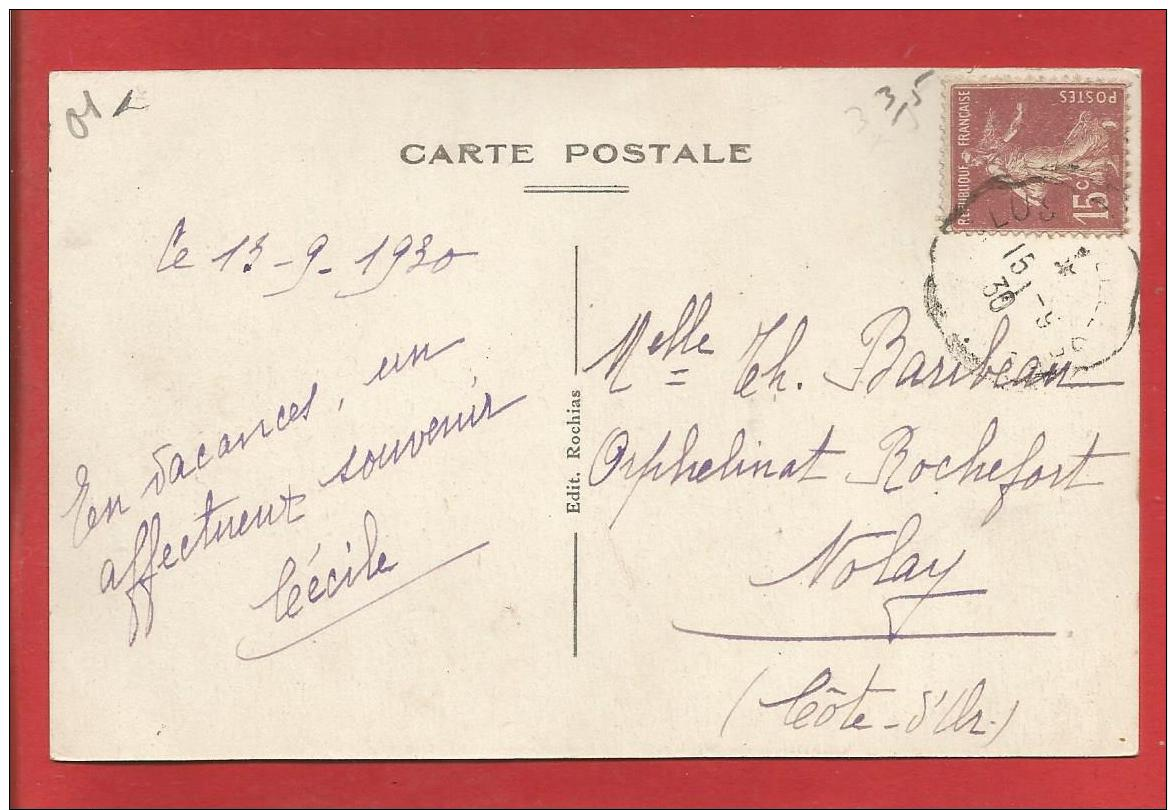 01
3,5
CARTE POSTALE
REPUBLIQUE FRANÇAISE
POSTES
15c
15 - 9
30
Le 13-9-1930
En vacances, un
affectueux souvenir
Cécile
Edit. Rochias
Melle Th. Baribeau
Orphelinat Rochefort
Nolay
(Côte-d'Or)